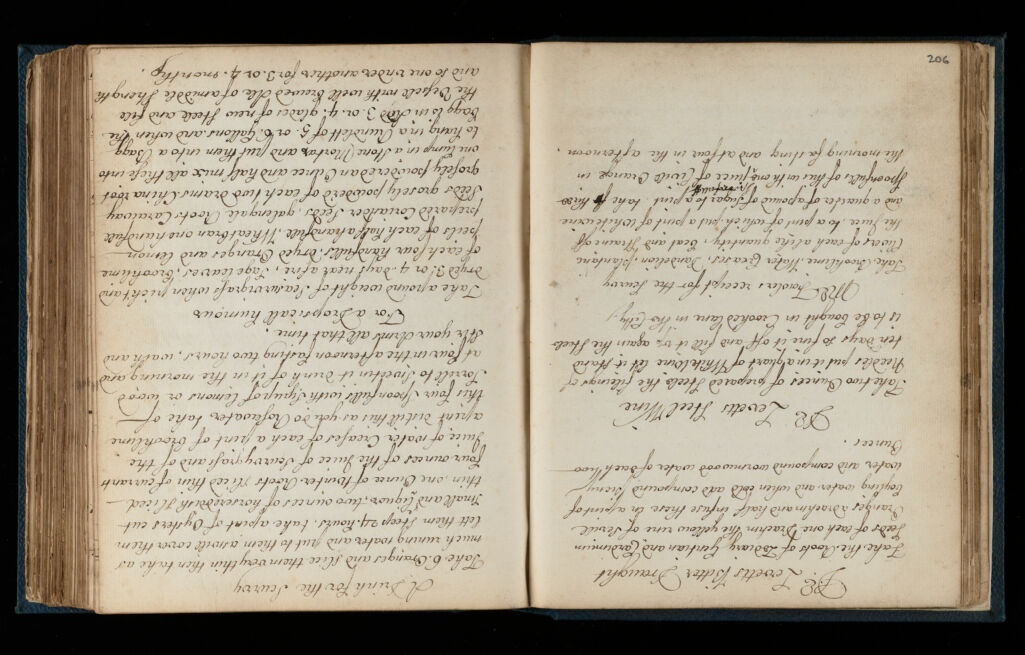 206
Dr Levetts Bitter Draught
Take the Roots of Zodiary Gentian and Cardimim
seeds of each one Drachm the yellow rine of Sevile
Oranges a drachm and half infuse them in a pint of
boyling water and when cold add compound briony
water and compound wormwood water of each two
Ounces.
Dr Levetts Steel Wine
Take two Ounces of prepared Steele the fileings of
Needles put it in a quart of Whit Wine let it stand
ten days so fine it off and fill it up again the Steele
is to be bought in Crooked lane in the Citty.
Mrs Fowler receipt for the Scurvy
Take Brooklime Water Creases, Dandelion, plantaine
Clivers of each a like quantity, beat and straine off
the Juice, to a pint of which put a pint of White wine
and a quarter of a pound of Sugar to a pint take
Spoonfulls of this with juice of Civile Orange in
the morning fasting and at four in the afternoon.
A Drink for the Scurvy
Take 6 Oranges and slice them very thin then take as
much running water and put to them as will cover them
let them steep 24 hours. take a pint of Oysters cut
small and Liquor, two ounces of horseredish sliced
thin one Ounce of Winter Roots sliced thin of currant
four ounces of the Juice of Scurvygrass and the
Juice of water Creases of each a pint of Brooklime
a pint distill this as you do Rosewater take of
this four spoonfulls with syrup of Lemons or wood
Sorrill to sweeten it drink of it in the morning and
at four in the afternoon fasting two hours, wash and
stir your Arms all that time.
For a Dropsicall humour
Take a pound weight of Seascurvigrass when pickt and
dryed 3. or 4. days near a fire, Sage leaves, brooklime
of each four handfulls. dryed Oranges and Lemon
peils of each half a handfull. Wheat bran one handfull
prepared Coriander seeds galengale Roots Cardimay
seeds grosely powdered of each two drams China root
grosely powdered an Ounce and half mix all these into
one lump in a stone Mortar and put them into a Bagg
to hang in a Rundlett of 5. or 6. gallons and when the
bagg is in add 3 or 4. glades of new steel and fill
the Vessell with well brewed Ale of a middle strength
and so one under another for 3. or 4. months.